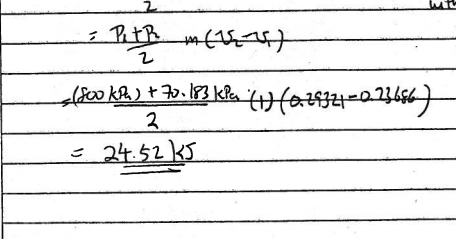 2
= P₁+P₂/2 m (v₂-v₁)
= (800 kPa) + 70.183 kPa/2 (1) (0.29321-0.23686)
= 24.52 kJ